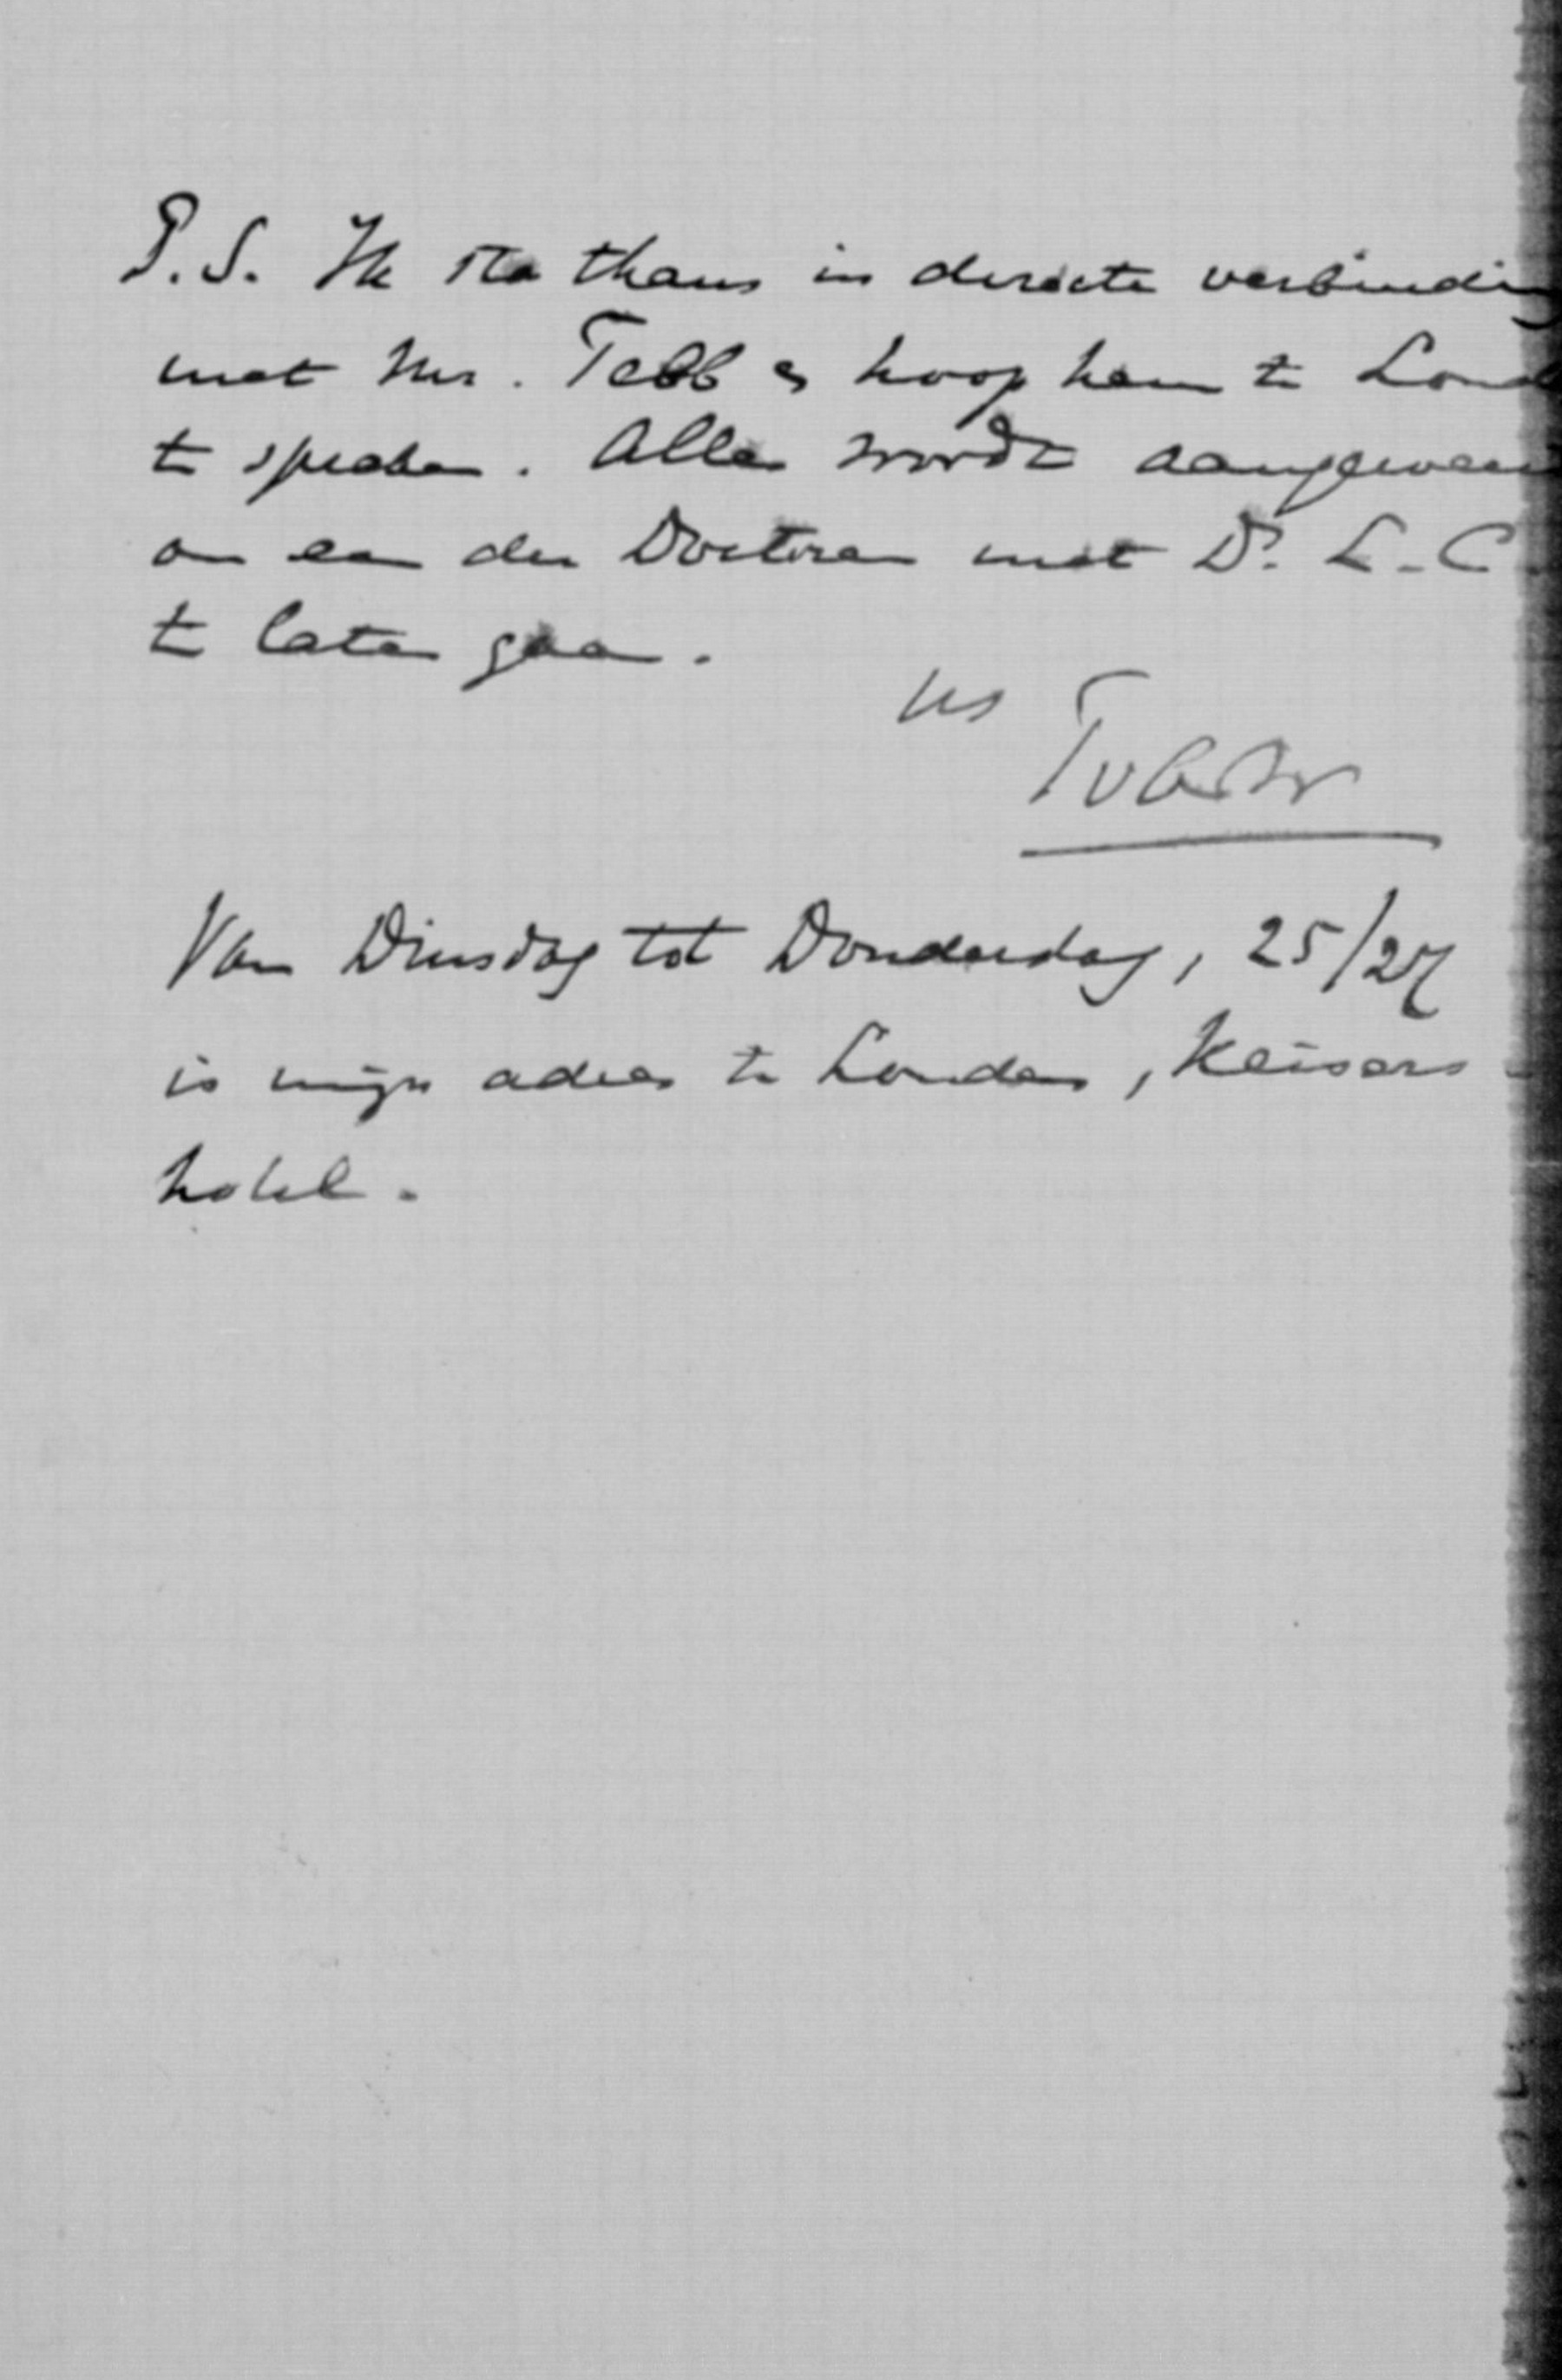 P.S. Ik sta thans in directe verbinding
met Mr. Tebb en hoop hem te Lond
te spreken. Alles wordt aangewend
om een der Doctoren met Dr. L. C.
te laten gaan.
Van Dinsdag tot Donderdag, 25/27
is mijn adres te Londen, Keisers
hotel.